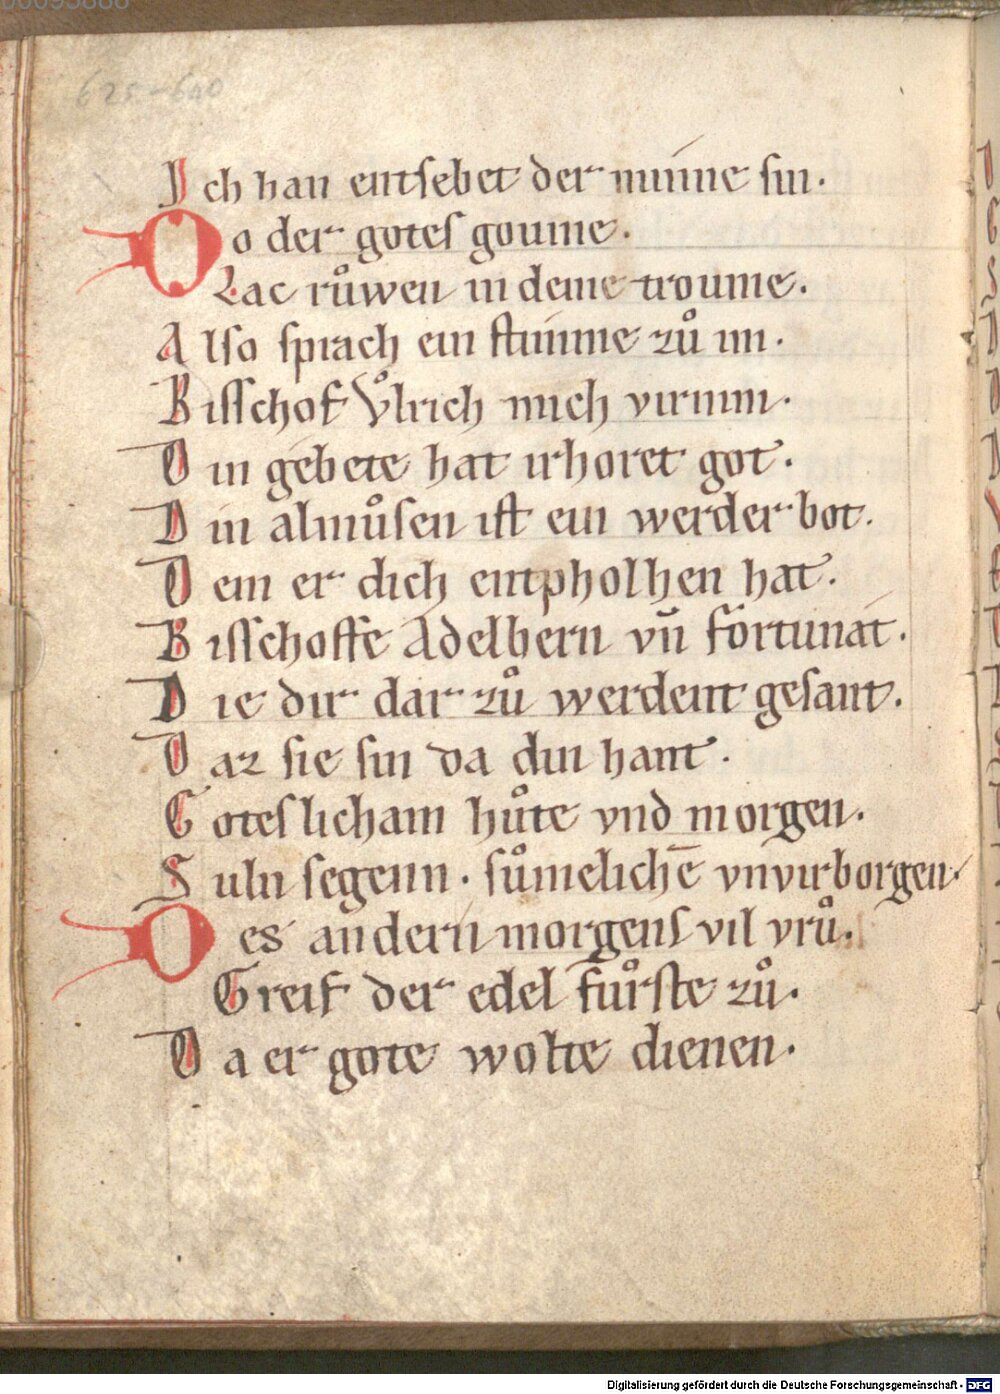 625–640
Ich han entsebet der minne sin.
Do der gotes goume.
Lac růwen in deme troume.
Also sprach ein stimme zů im.
Bisschof Vͦlrich mich virnim.
Din gebete hat irhoret got.
Din almůsen ist ein werder bot.
Dem er dich entpholhen hat.
Bisschoffe Adelbern vn̄ fortunat.
Die dir dar zů werdent gesant.
Daz sie sin da din hant.
Gotes licham hůte vnd morgen.
Suln segenn. sůmelichē vnvirborgen.
Des andern morgens vil vrů.
Greif der edel fůrste zů.
Da er gote wolte dienen.
Digitalisierung gefördert durch die Deutsche Forschungsgemeinschaft - DFG